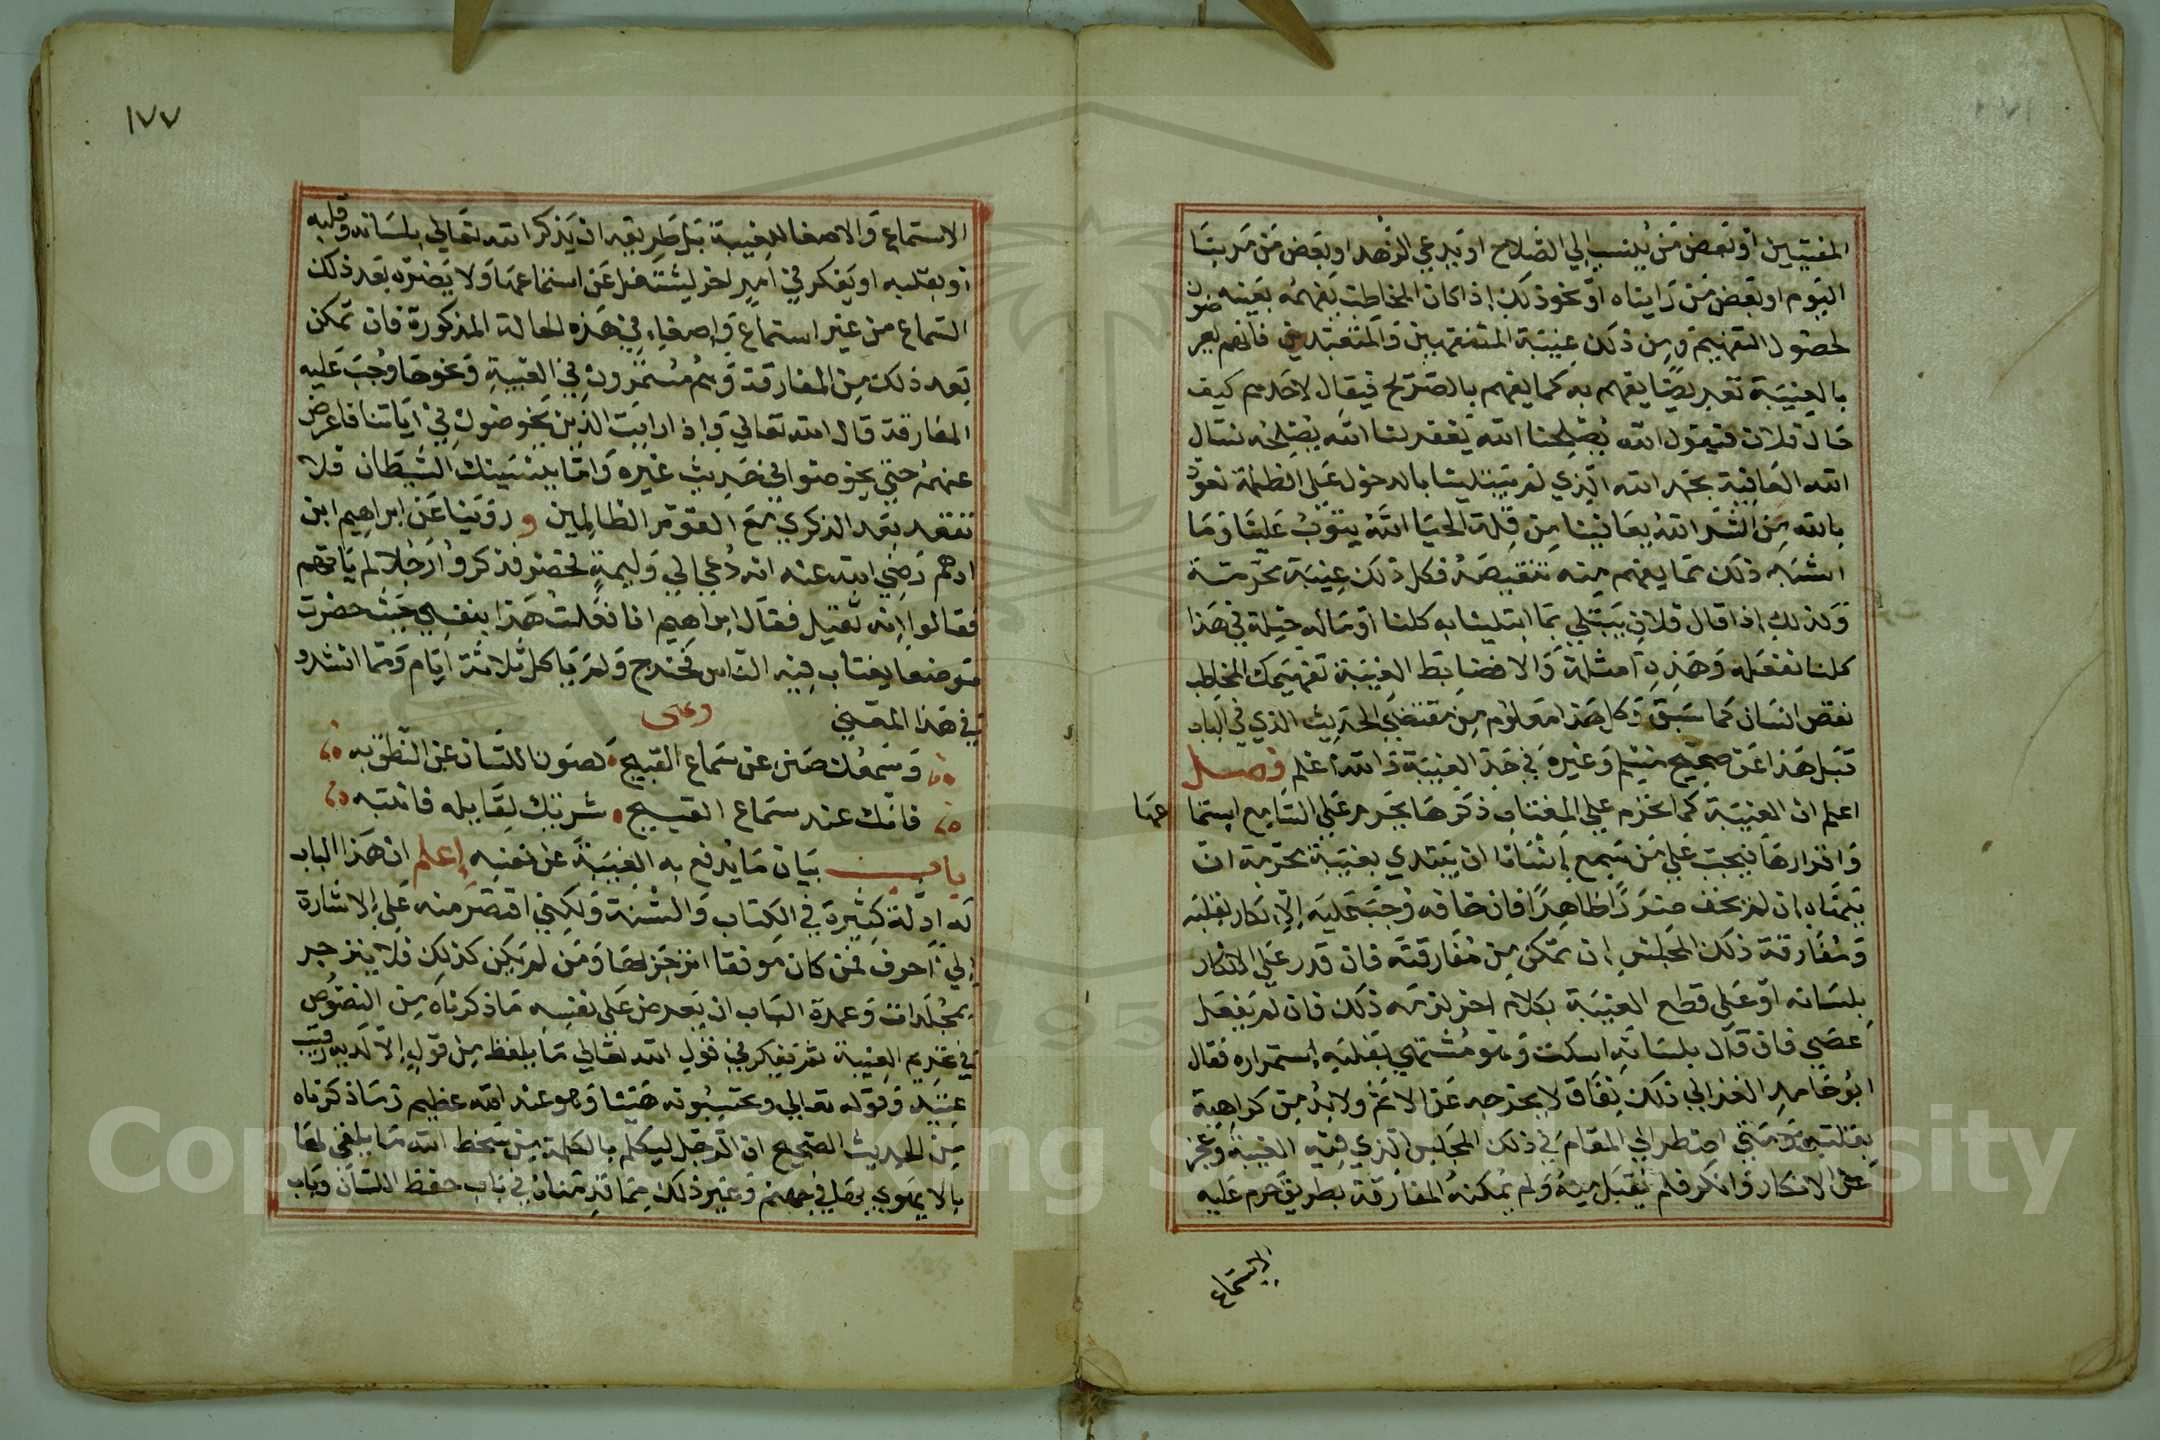 المفتيين او بعض من ينسب الي الصلاح او يدعي الزهد او بعض من مر بنا
اليوم او بعض من رايناه او نحو ذلك اذا كان المخاطب يفهمه بعينه
لحصول التفهيم ومن ذلك غيبة المتفقهين والمتعبدين فانهم يعر ضون
بالغيبة تعريضا يفهم به كما يفهم بالصريح فيقال لاحدهم كيف
حال فلان فيقول الله يصلحنا الله يغفر لنا الله يصلحه نسال
الله العافية نحمد الله الذي لم يبتلينا بالدخول علي الظلمة نعوذ
بالله من الشر الله يعافينا من قلة الحيا الله يتوب علينا وما
اشبه ذلك مما يفهم منه تنقيصه فكل ذلك غيبة محرمة
وكذلك اذا قال فلان يبتلي بما ابتلينا به كلنا او ماله حيلة في هذا
كلنا نفعله وهذه امثلة والا فضابط الغيبة تفهيمك المخاطب
نقص انسان كما سبق وكل هذا معلوم من مقتضي الحديث الذي في الباب
قبل هذا عن صحيح مسلم وغيره في حد الغيبة والله اعلم فصل
اعلم ان الغيبة كما تحرم علي المغتاب ذكرها يحرم علي السامع استما عها
واقرارها فيجب علي من سمع انسانا يبتدي بغيبة محرمة ان
ينهاه ان لم يخف ضررا ظاهرا فان خافه وجب عليه الانكار بقلبه
ومفارقة ذلك المجلس ان تمكن من مفارقته فان قدر علي الانكار
بلسانه او علي قطع الغيبة بكلام اخر لزمه ذلك فان لم يفعل
عصي فان قال بلسانه اسكت وهو مشتهي بقلبه استمراره فقال
ابو حامد الغزالي ذلك نفاق لا يخرجه عن الاثم ولابد من كراهية
بقلبه ومتي اضطر الي المقام في ذلك المجلس الذي فيه الغيبة وعجز
عن الانكار وانكر فلم يقبل منه ولم يمكنه المفارقة بطريق حرم عليه
الاستماع
١٧٧
الاستماع والاصغا للغيبة بل طريقه ان يذكر الله تعالي بلسانه وقلبه
او بقلبه او يفكر في امر اخر ليشتغل عن استماعها ولا يضره بعد ذلك
السماع من غير استماع واصغاء في هذه الحالة المذكورة فان تمكن
بعد ذلك من المفارقة وهم مستمرون في الغيبة ونحوها وجب عليه
المفارقة قال الله تعالي واذا رايت الذين يخوضون في اياتنا فاعرض
عنهم حتي يخوضوا في حديث غيره واما ينسينك الشيطان فلا
تقعد بعد الذكري مع القوم الظالمين وروينا عن ابراهيم ابن
ادهم رضي الله عنه انه دعي الي وليمة فحضر فذكروا رجلا لم ياتهم
فقالوا انه ثقيل فقال ابراهيم انا فعلت هذا بنفسي حيث حضرت
موضعا يغتاب فيه الناس فخرج ولم ياكل ثلاثة ايام ومما انشدو
في هذا المعني
وسمعك صن عن سماع القبيح كصون اللسان عن النطق به
فانك عند سماع القبيح شريك لقايله فانتبه
باب بيان ما يدفع به الغيبة عن نفسه اعلم ان هذا الباب
له ادلة كثيرة في الكتاب والسنة ولكني اقتصر منه علي الاشارة
الي احرف فمن كان موفقا انزجر بها ومن لم يكن كذلك فلا ينزجر
بمجلدات وعمدة الباب ان يعرض علي نفسه ما ذكرناه من النصوص
في تحريم الغيبة ثم يفكر في قول الله تعالي ما يلفظ من قول الا لديه رقيب
عتيد وقوله تعالي وتحسبونه هينا وهو عند الله عظيم وما ذكرناه
من الحديث الصحيح ان الرجل ليتكلم بالكلمة من سخط الله ما يلقي لها
بالا يهوي بها في جهنم وغير ذلك مما قدمناه في باب حفظ اللسان وباب
Copyright © King Saud University